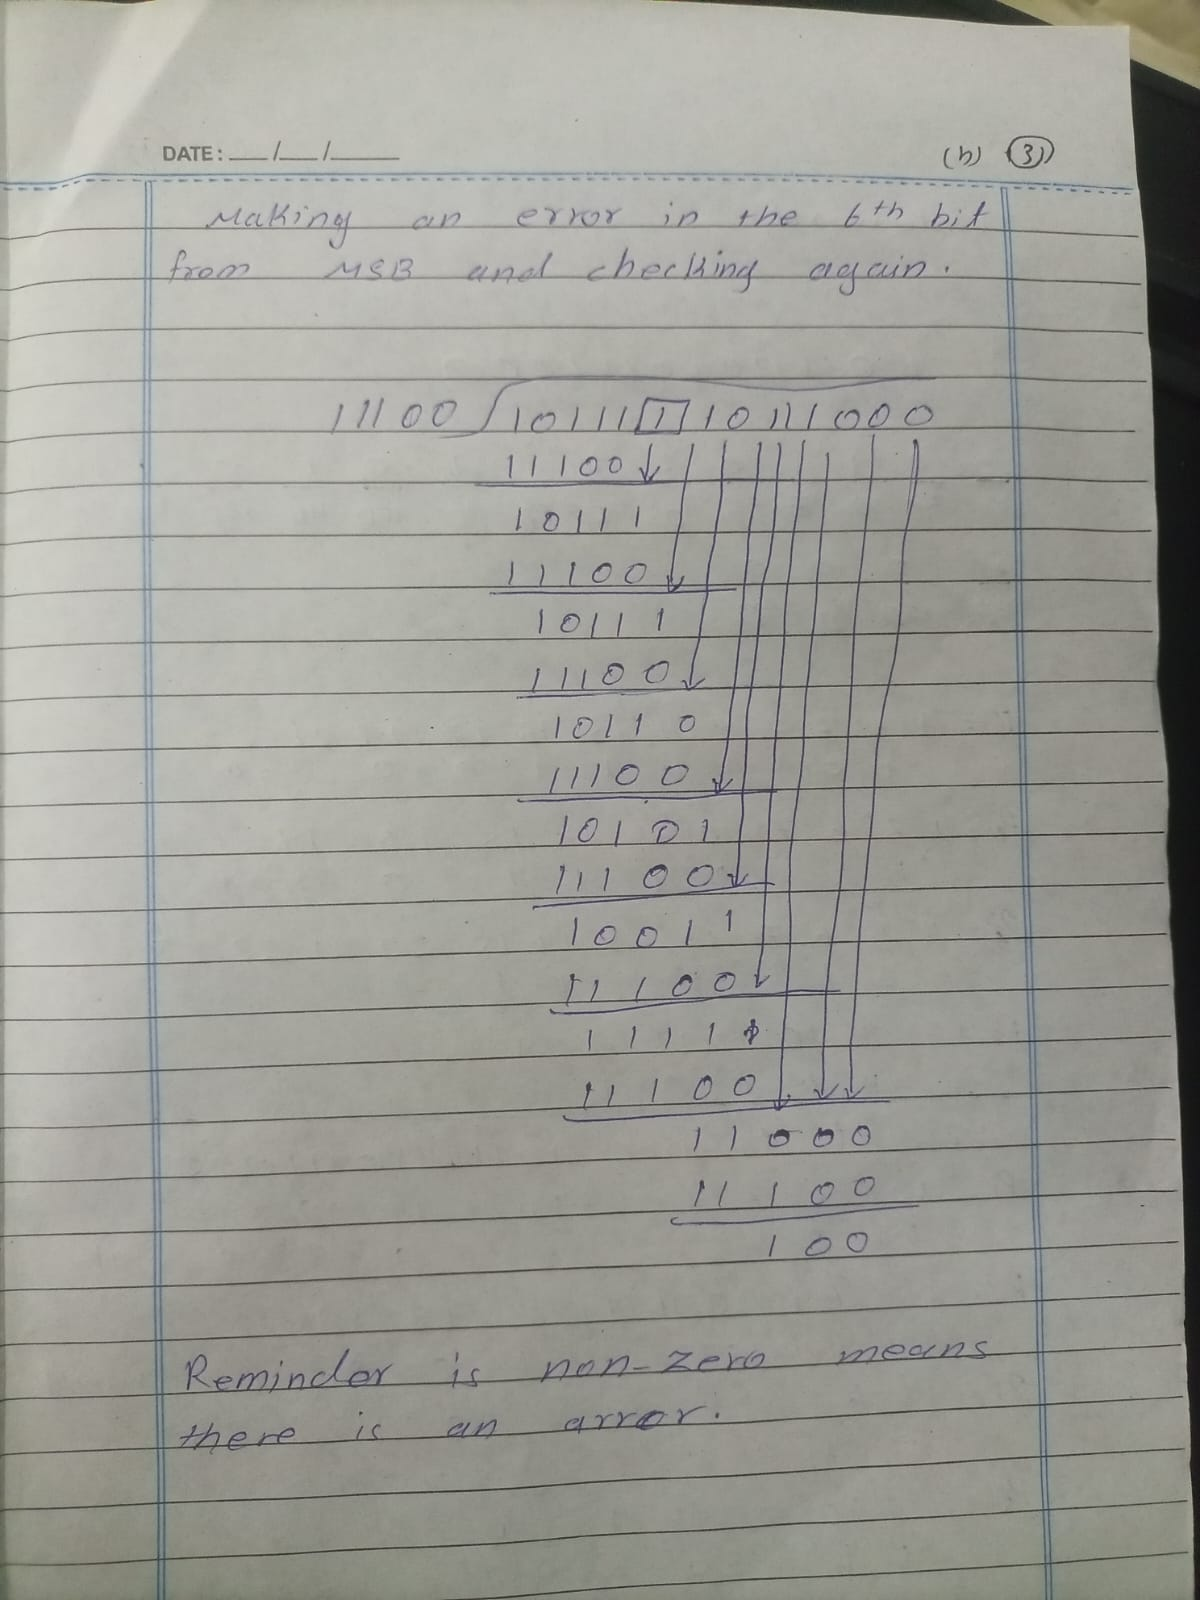 DATE: __/__/____ (b) (3)
Making an error in the 6th bit
from MSB and checking again.
11100 10111110111000
11100
10111
11100
10111
11100
10110
11100
10101
11100
10011
11100
1111
11100
11000
11100
100
Reminder is non-zero means
there is an arror.